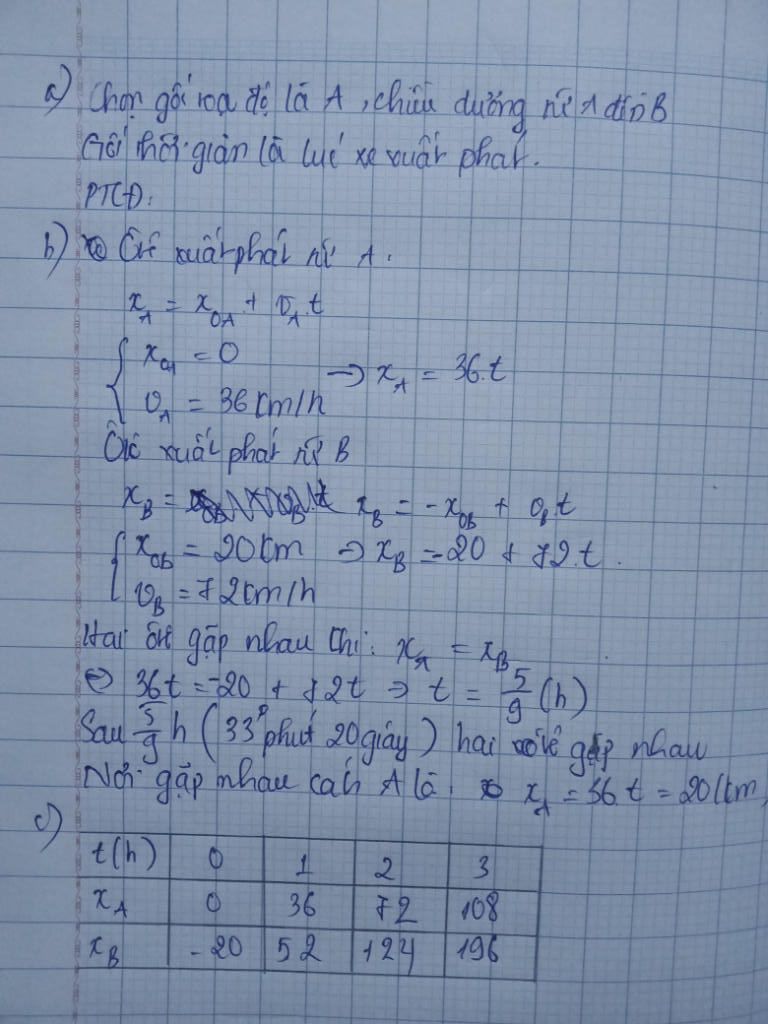 a) Chọn gốc toạ độ là A, chiều dương từ A đến B
Gốc thời gian là lúc xe xuất phát.
PTCĐ:
b) Ôtô xuất phát từ A.
x_A = x_0A + v_A.t
{ x_0A = 0
v_A = 36 km/h → x_A = 36.t
Ôtô xuất phát từ B
x_B = x_B = -x_0B + v_B t
{ x_0B = 20km ⇒ x_B = -20 + 72.t.
v_B = 72km/h
Hai ôtô gặp nhau khi: x_A = x_B
⇔ 36t = -20 + 72t ⇒ t = 5/9 (h)
Sau 5/9 h (33 phút 20 giây) hai gặp nhau
Nơi gặp nhau cách A là: x_A = 36.t = 20km
c)
t(h) 0 1 2 3
x_A 0 36 72 108
x_B -20 52 124 196